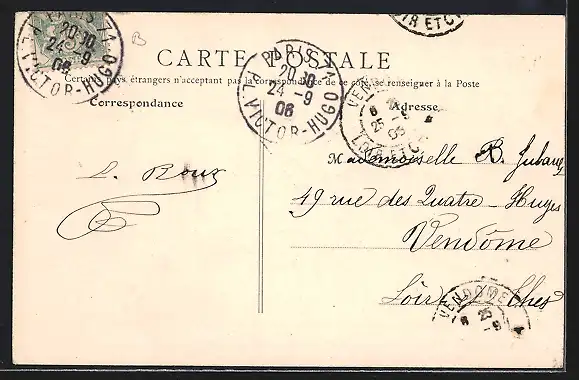 PARIS 71
20 10
24 - 9
06
PL. VICTOR-HUGO
B
PARIS 71
20 10
24 - 9
06
PL. VICTOR-HUGO
IR ET C
CARTE POSTALE
Certains pays étrangers n'acceptant pas la correspondance de ce côté, se renseigner à la Poste
Correspondance
Adresse
VEN
25 - 9
LOIR ET C
Mademoiselle R.
L. Roux
49 rue des Quatre-Huyes
Vendôme
Loir et Cher
VENDOME
25 - 9